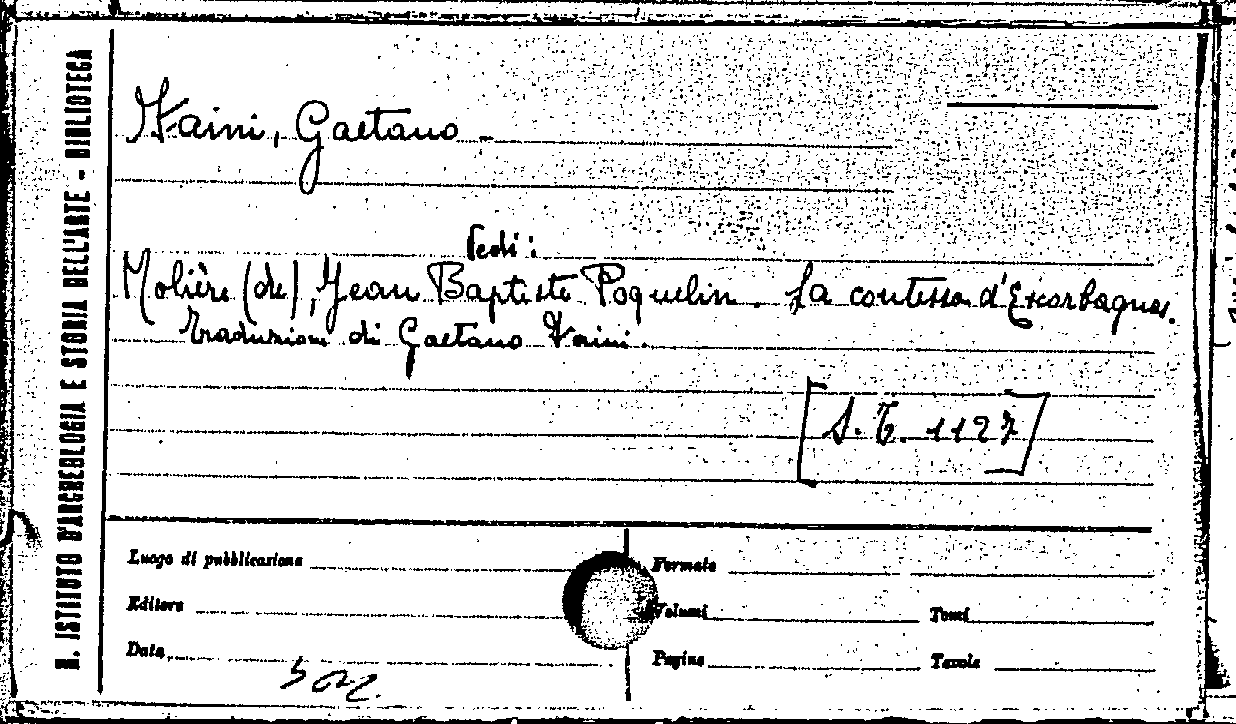 R. ISTITUTO D'ARCHEOLOGIA E STORIA DELL'ARTE - BIBLIOTECA
Vaini, Gaetano -
Vedi:
Molière (de), Jean Baptiste Poquelin. La contessa d'Escarbagnas.
Traduzione di Gaetano Vaini.
[S. T. 1127]
Luogo di pubblicazione
Formato
Editore
Volumi Tomi
Data
Pagine Tavole